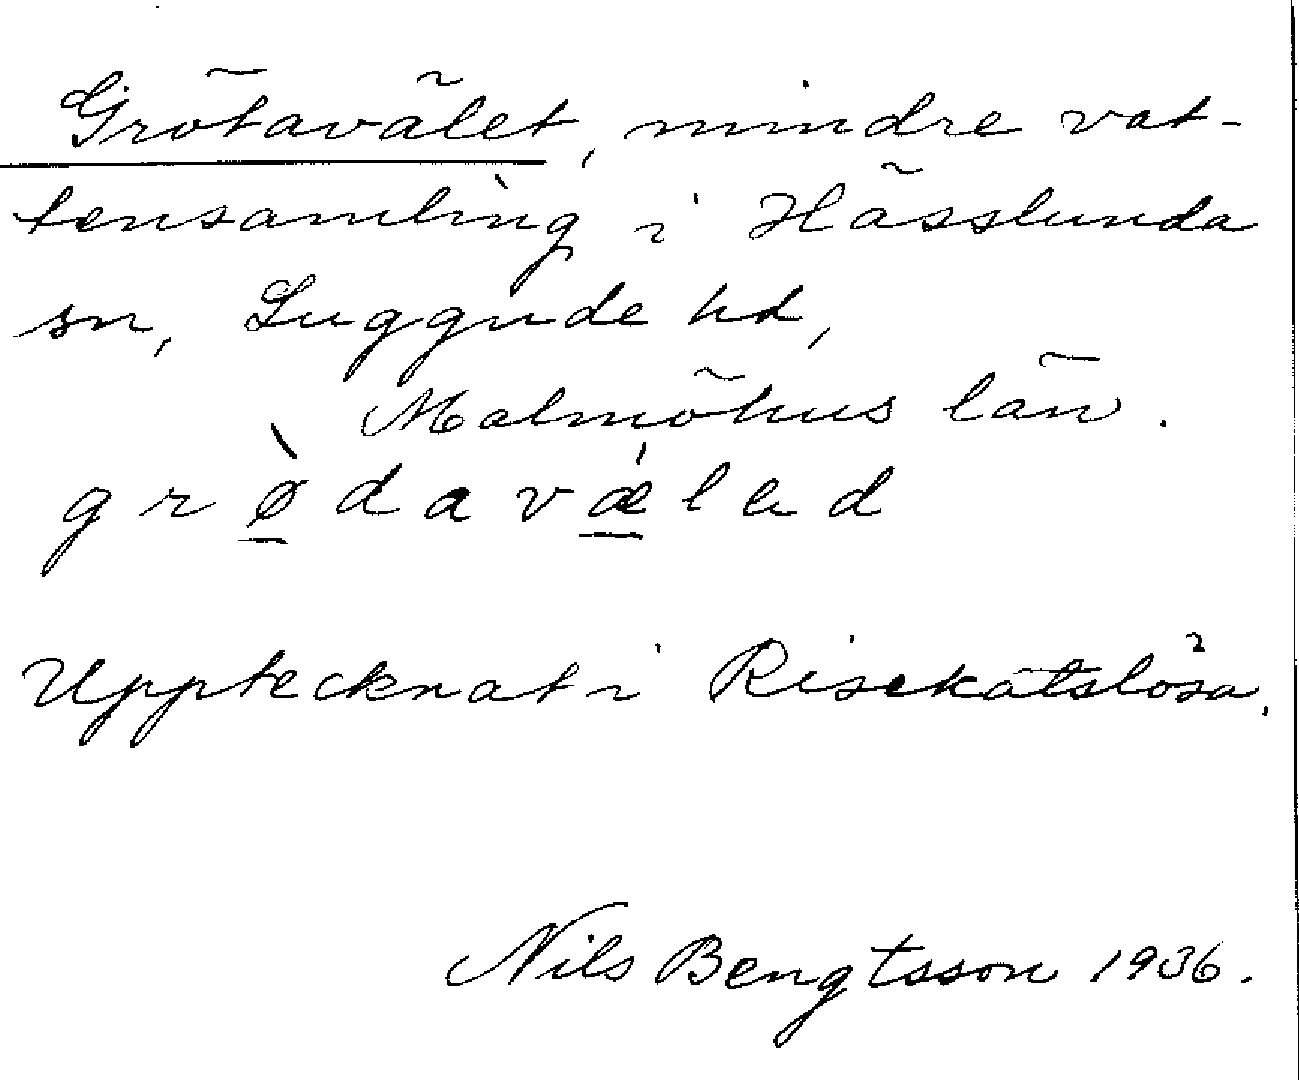 Grötavälet, mindre vat-
tensamling i Hässlunda
sn, Luggude hd,
Malmöhus län.
grø̠̀davǽ̠ləd
Upptecknat i Risekatslösa.
Nils Bengtsson 1936.